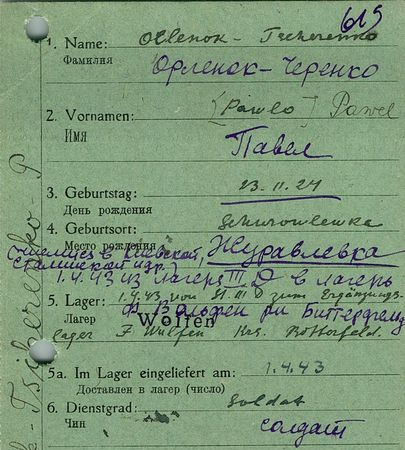 615
1. Name: Orlenok - Tscherenko
Фамилия Орленок-Черенко
2. Vornamen: (Pawlo) Pawel
Имя Павел
3. Geburtstag: 23.11.24
День рождения
4. Geburtsort:
Место рождения Журавлевка
1.4.43 из лагеря III D в лагерь
5. Lager: 1.4.43 von St. III D zum Ergänzungs-
Лагерь Wolfen Ф Вольфен
lager F. Wulfen Krs. Bitterfeld.
5a. Im Lager eingeliefert am: 1.4.43
Доставлен в лагерь (число)
6. Dienstgrad: Soldat
Чин солдат